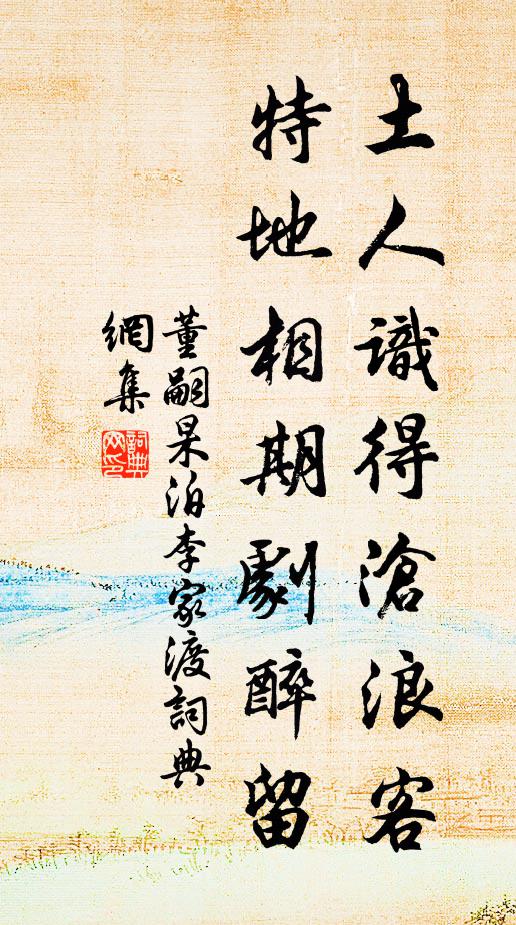 土人識得滄浪客
特地相期劇醉留
董嗣杲泊李家渡詞典
網集
詞典
网印